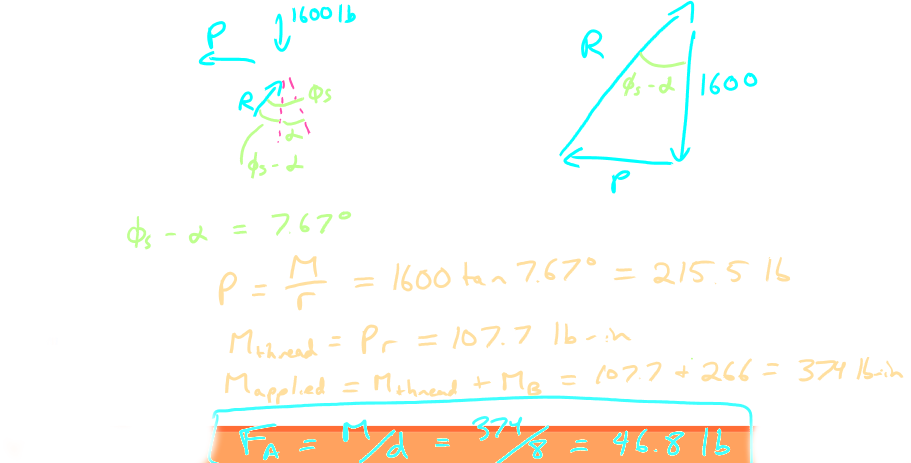 1600 lb
P
R
ϕs
α
ϕs - α
R
ϕs - α
1600
P
ϕs - α = 7.67°
P = M/r = 1600 tan 7.67° = 215.5 lb
Mthread = Pr = 107.7 lb-in
Mapplied = Mthread + MB = 107.7 + 266 = 374 lb-in
FA = M/d = 374/8 = 46.8 lb